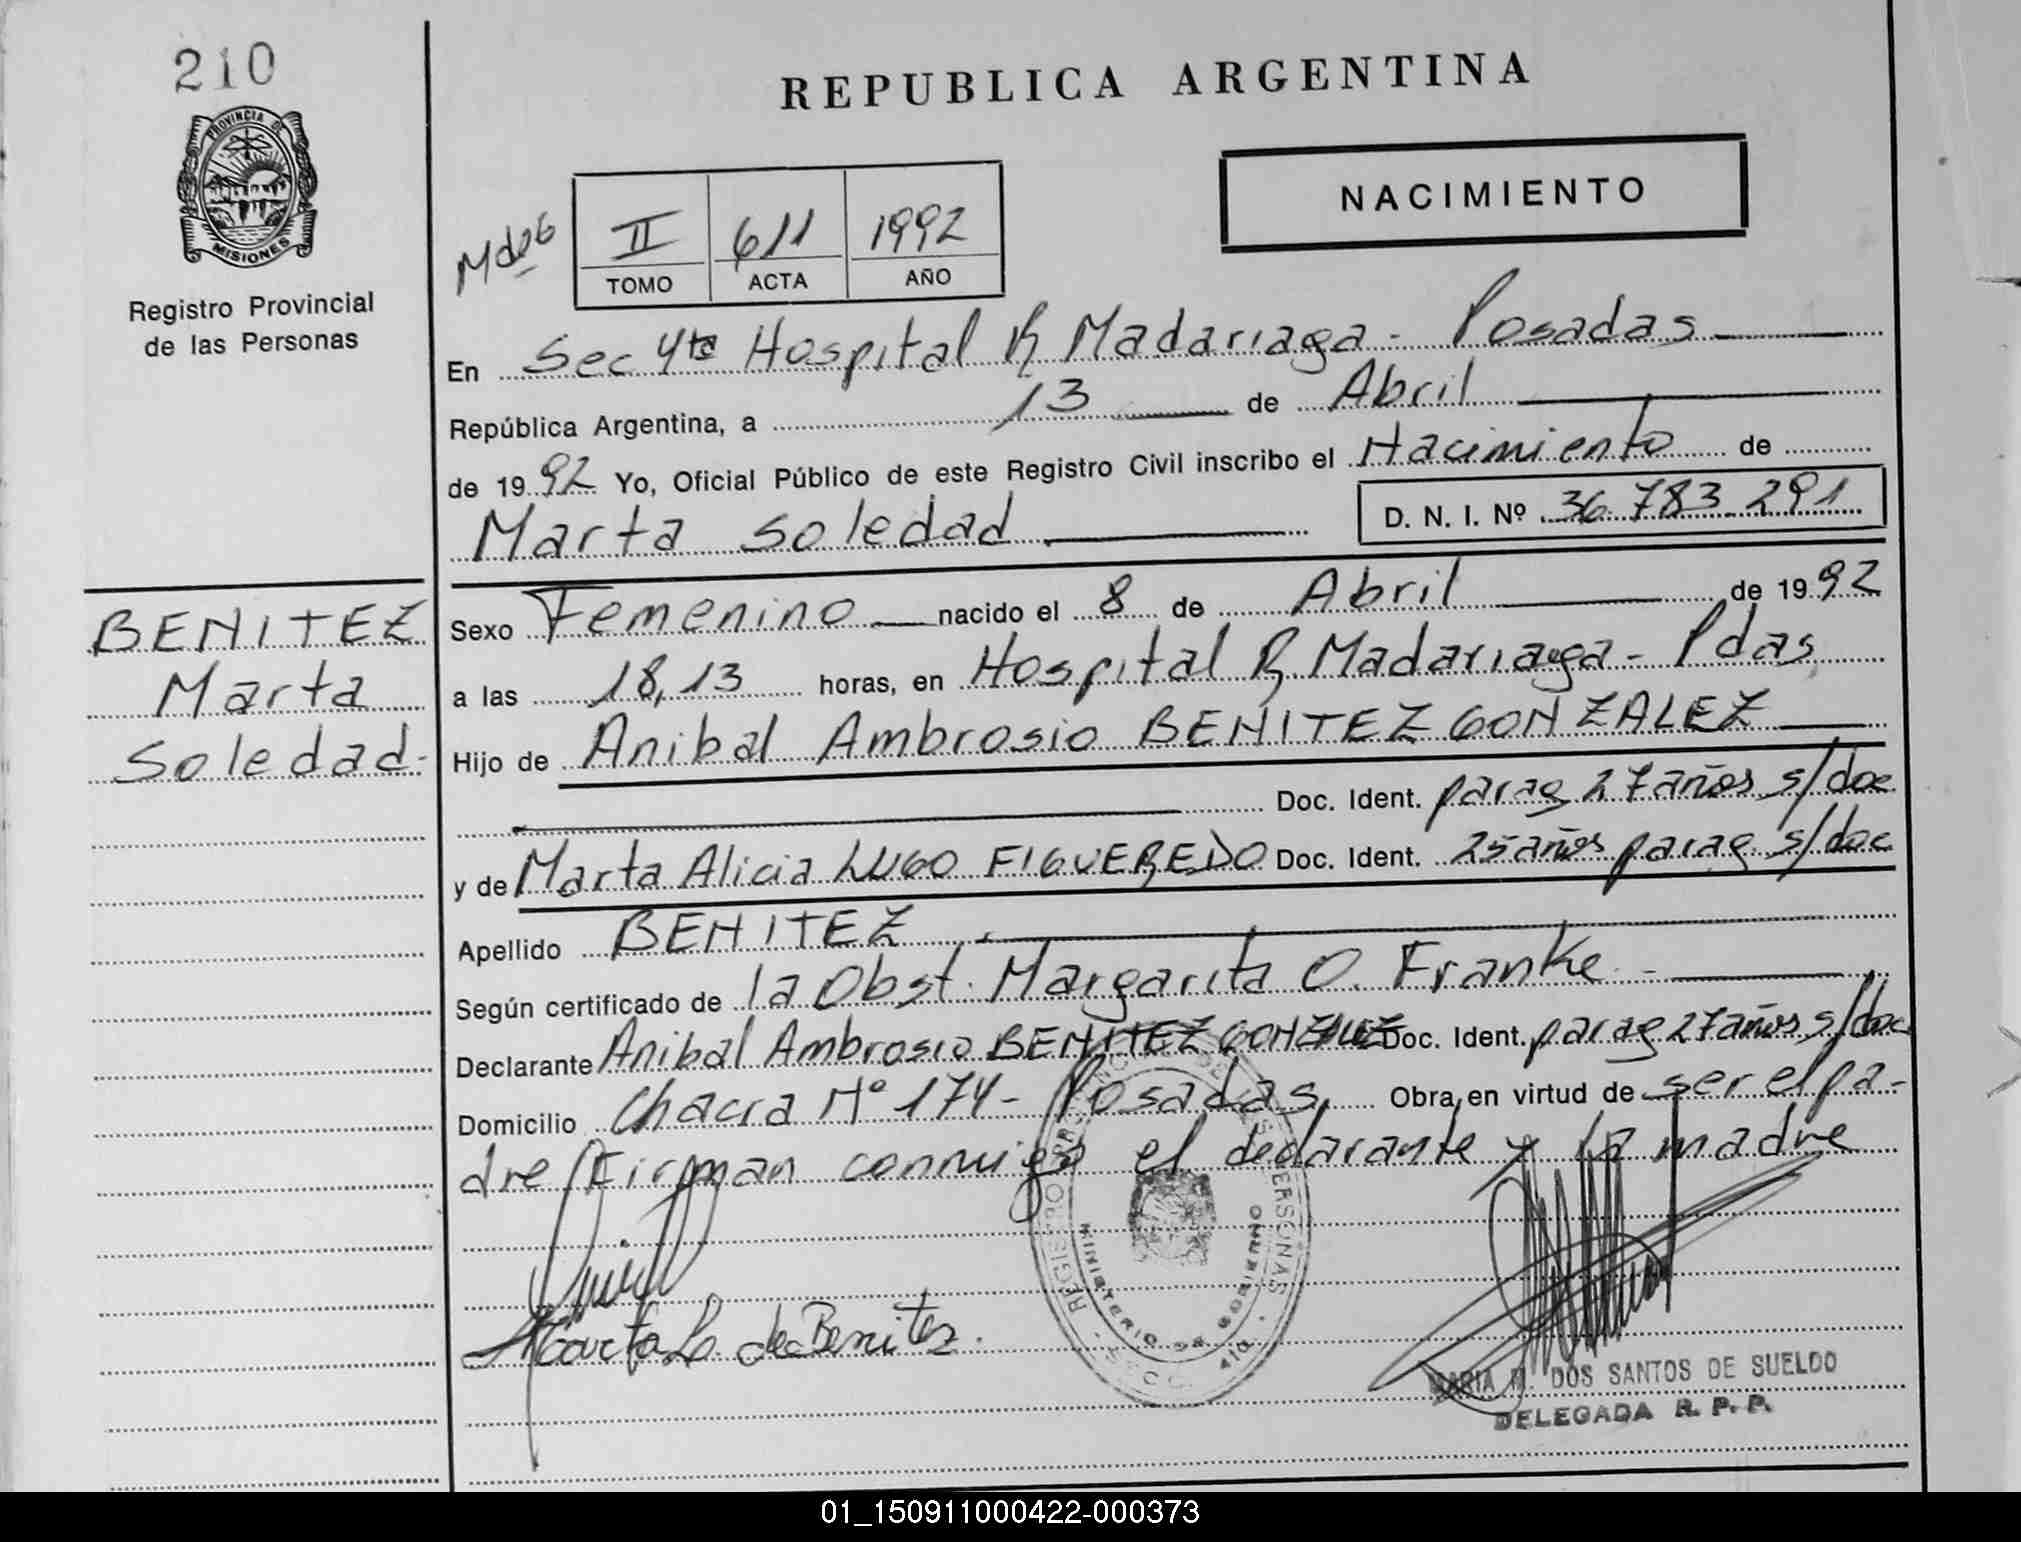 210
PROVINCIA DE
MISIONES
Registro Provincial
de las Personas
REPUBLICA ARGENTINA
NACIMIENTO
II 611 1992
TOMO ACTA AÑO
En Sec 4ta Hospital R Madariaga - Posadas
República Argentina, a 13 de Abril
de 1992 Yo, Oficial Público de este Registro Civil inscribo el Nacimiento de
Marta Soledad D. N. I. Nº 36.783.291
BENITEZ
Marta
Soledad.
Sexo Femenino nacido el 8 de Abril de 1992
a las 18,13 horas, en Hospital R. Madariaga - Pdas
Hijo de Anibal Ambrosio BENITEZ GONZALEZ
Doc. Ident. parag 27 años s/doc
y de Marta Alicia LUGO FIGUEREDO Doc. Ident. 25 años parag s/doc
Apellido BENITEZ
Según certificado de la Obst. Margarita O. Franke
Declarante Anibal Ambrosio BENITEZ GONZALEZ Doc. Ident. parag 27 años s/doc
Domicilio Chacra Nº 174 - Posadas Obra en virtud de ser el pa-
dre / Firman conmigo el declarante y la madre
REGISTRO PERSONAS
MINISTERIO DE GOBIERNO
Marta L. de Benitez.
MARIA M. DOS SANTOS DE SUELDO
DELEGADA R. P. P.
01_150911000422-000373